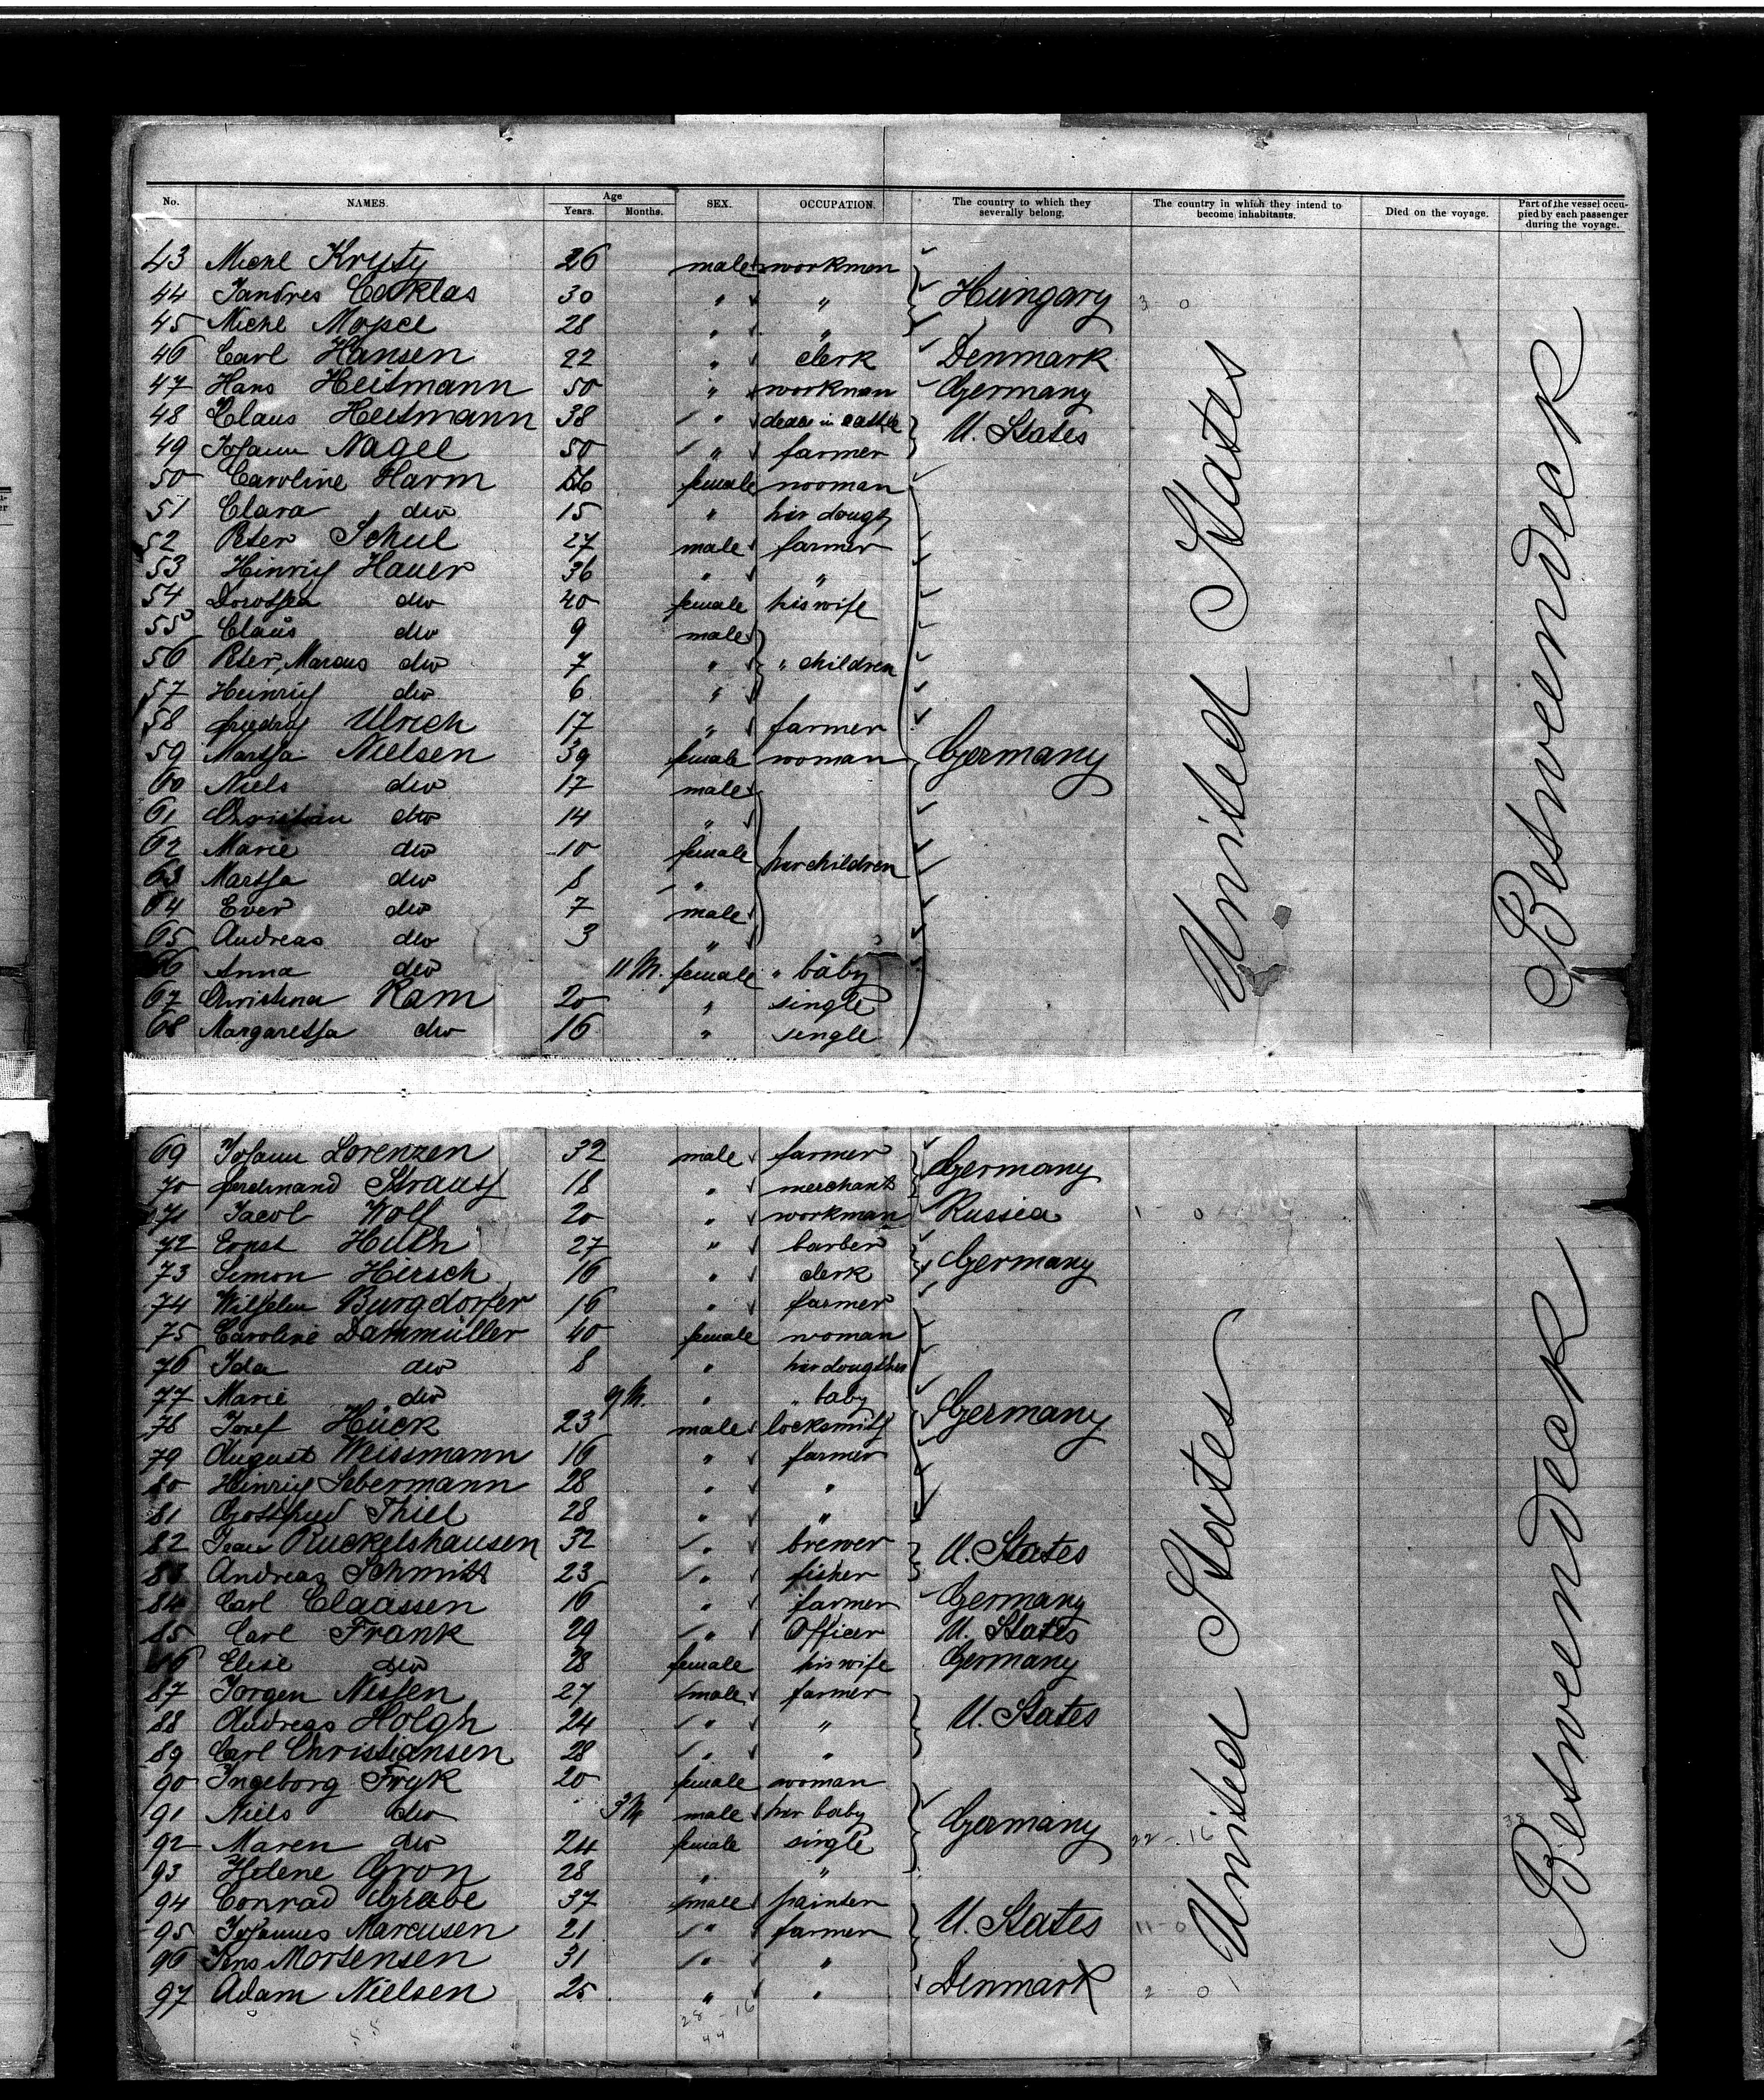 No. NAMES. Age Years. Months. SEX. OCCUPATION. The country to which they severally belong. The country in which they intend to become inhabitants. Died on the voyage. Part of the vessel occupied by each passenger during the voyage.
43 Michl Krysty 26 male workman
44 Jandres Caklas 30 " " Hungary 3 0
45 Michl Mopel 28 " "
46 Carl Hansen 22 " clerk Denmark
47 Hans Heitmann 50 " workman Germany
48 Claus Heitmann 38 " dealer in cattle U. States
49 Johann Nagel 50 " farmer
50 Caroline Harm female woman
51 Clara do 15 " her dougt
52 Peter Schul 27 male farmer
53 Hinrich Hauer 36 " "
54 Dorothea do 40 female his wife
55 Claus do 9 male
56 Peter, Marcus do 7 " " children
57 Heinrich do 6 "
58 Friedrich Ulrich 17 " farmer
59 Martha Nielsen 39 female woman Germany
60 Niels do 17 male
61 Christian do 14 "
62 Marie do 10 female her children
63 Martha do 8 "
64 Ever do 7 male
65 Andreas do 3 "
66 Anna do 11 M. female " baby
67 Christina Ram 20 " single
68 Margaretha do 16 " single
United States
Betweendeck
69 Johann Lorenzen 32 male farmer Germany
70 Ferdinand Strauss 18 " merchant
71 Jacob Wolf 20 " workman Russia 1 0
72 Ernst Huth 27 " barber Germany
73 Simon Hirsch 16 " clerk
74 Wilhelm Burgdorfer 16 " farmer
75 Caroline Dammüller 40 female woman
76 Ida do 8 " her dougther
77 Marie do 9 M. " " baby Germany
78 Josef Hück 23 male locksmith
79 August Weissmann 16 " farmer
80 Heinrich Sebermann 28 " "
81 Gottfried Thiel 28 " "
82 Jean Ruckelshausen 32 " brewer U. States
83 Andreas Schmitt 23 " fisher
84 Carl Claassen 16 " farmer Germany
85 Carl Frank 29 " Officer U. States
86 Elise do 28 female his wife Germany
87 Jorgen Nissen 27 male farmer
88 Andreas Holgh 24 " " U. States
89 Carl Christiansen 28 " "
90 Ingeborg Fryk 20 female woman
91 Niels do 3 M male her baby Germany
92 Maren do 24 female single 22 - 16
93 Helene Gron 28 " "
94 Conrad Grabe 37 male painter
95 Johannes Marcusen 21 " farmer U. States 11-0
96 Jens Mortensen 31 " "
97 Adam Nielsen 25 " " Denmark 2 - 0
28 - 16
44
55
United States
38
Betweendeck